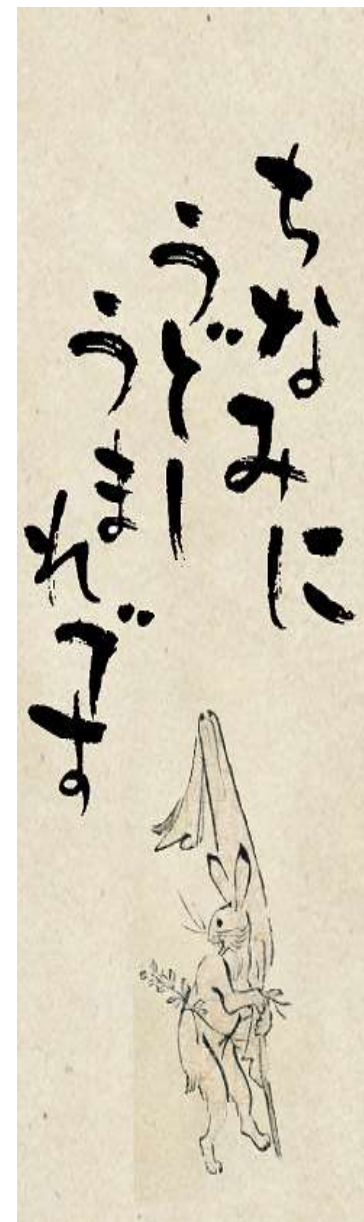 ちなみに
うどー
うまれです